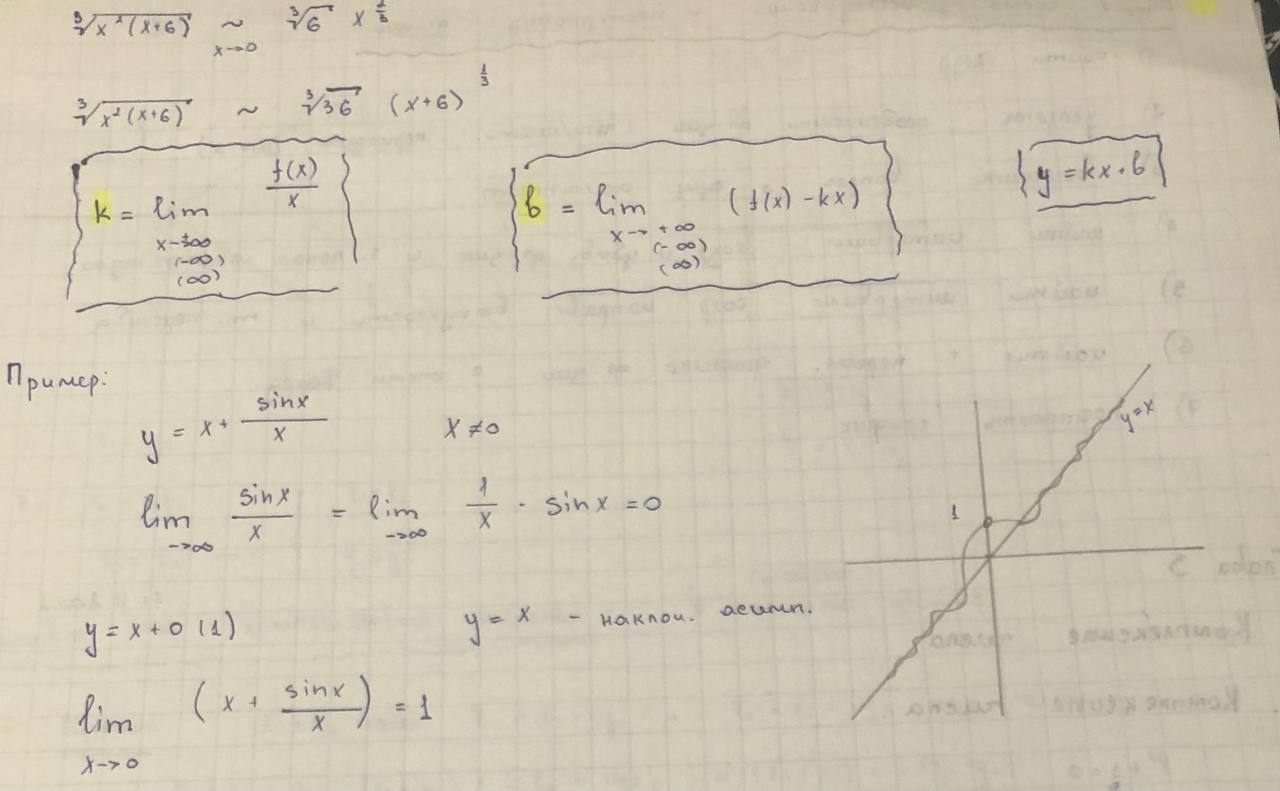 ∛(x²(x+6)) ~ ∛6 x^(2/3)
x→0
∛(x²(x+6)) ~ ∛36 (x+6)^(1/3)
k = lim f(x)/x
x→+∞
(-∞)
(∞)
b = lim (f(x) - kx)
x→ +∞
(-∞)
(∞)
y = kx + b
Пример:
y = x + sinx/x x ≠ 0
lim sinx/x = lim 1/x · sinx = 0
→∞ →∞
y = x
1
y = x + o(1) y = x - наклон. асимп.
lim (x + sinx/x) = 1
x→0